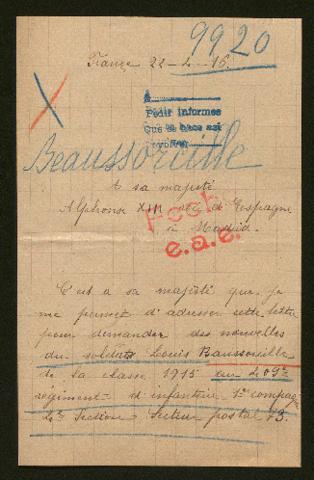 9920
France 22-4-16.
A
Pedir informes
Que se hace así
Beaussorville
A sa majesté
Alphonse XIII roi d'Espagne
à Madrid.
Fecha
e.a.e.
C'est a sa majesté que je
me permet d'adresser cette lettre
pour demander des nouvelles
du soldat Louis Baussorville
de la classe 1915 au 409e
régiment d'infanterie 1re compag
2e Section Secteur postal 73.